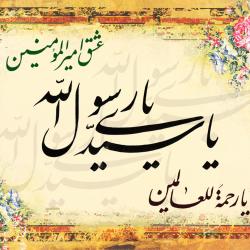 عشق امیرالمؤمنین
یا رسول الله
یا سیدی
یا رحمة للعالمین